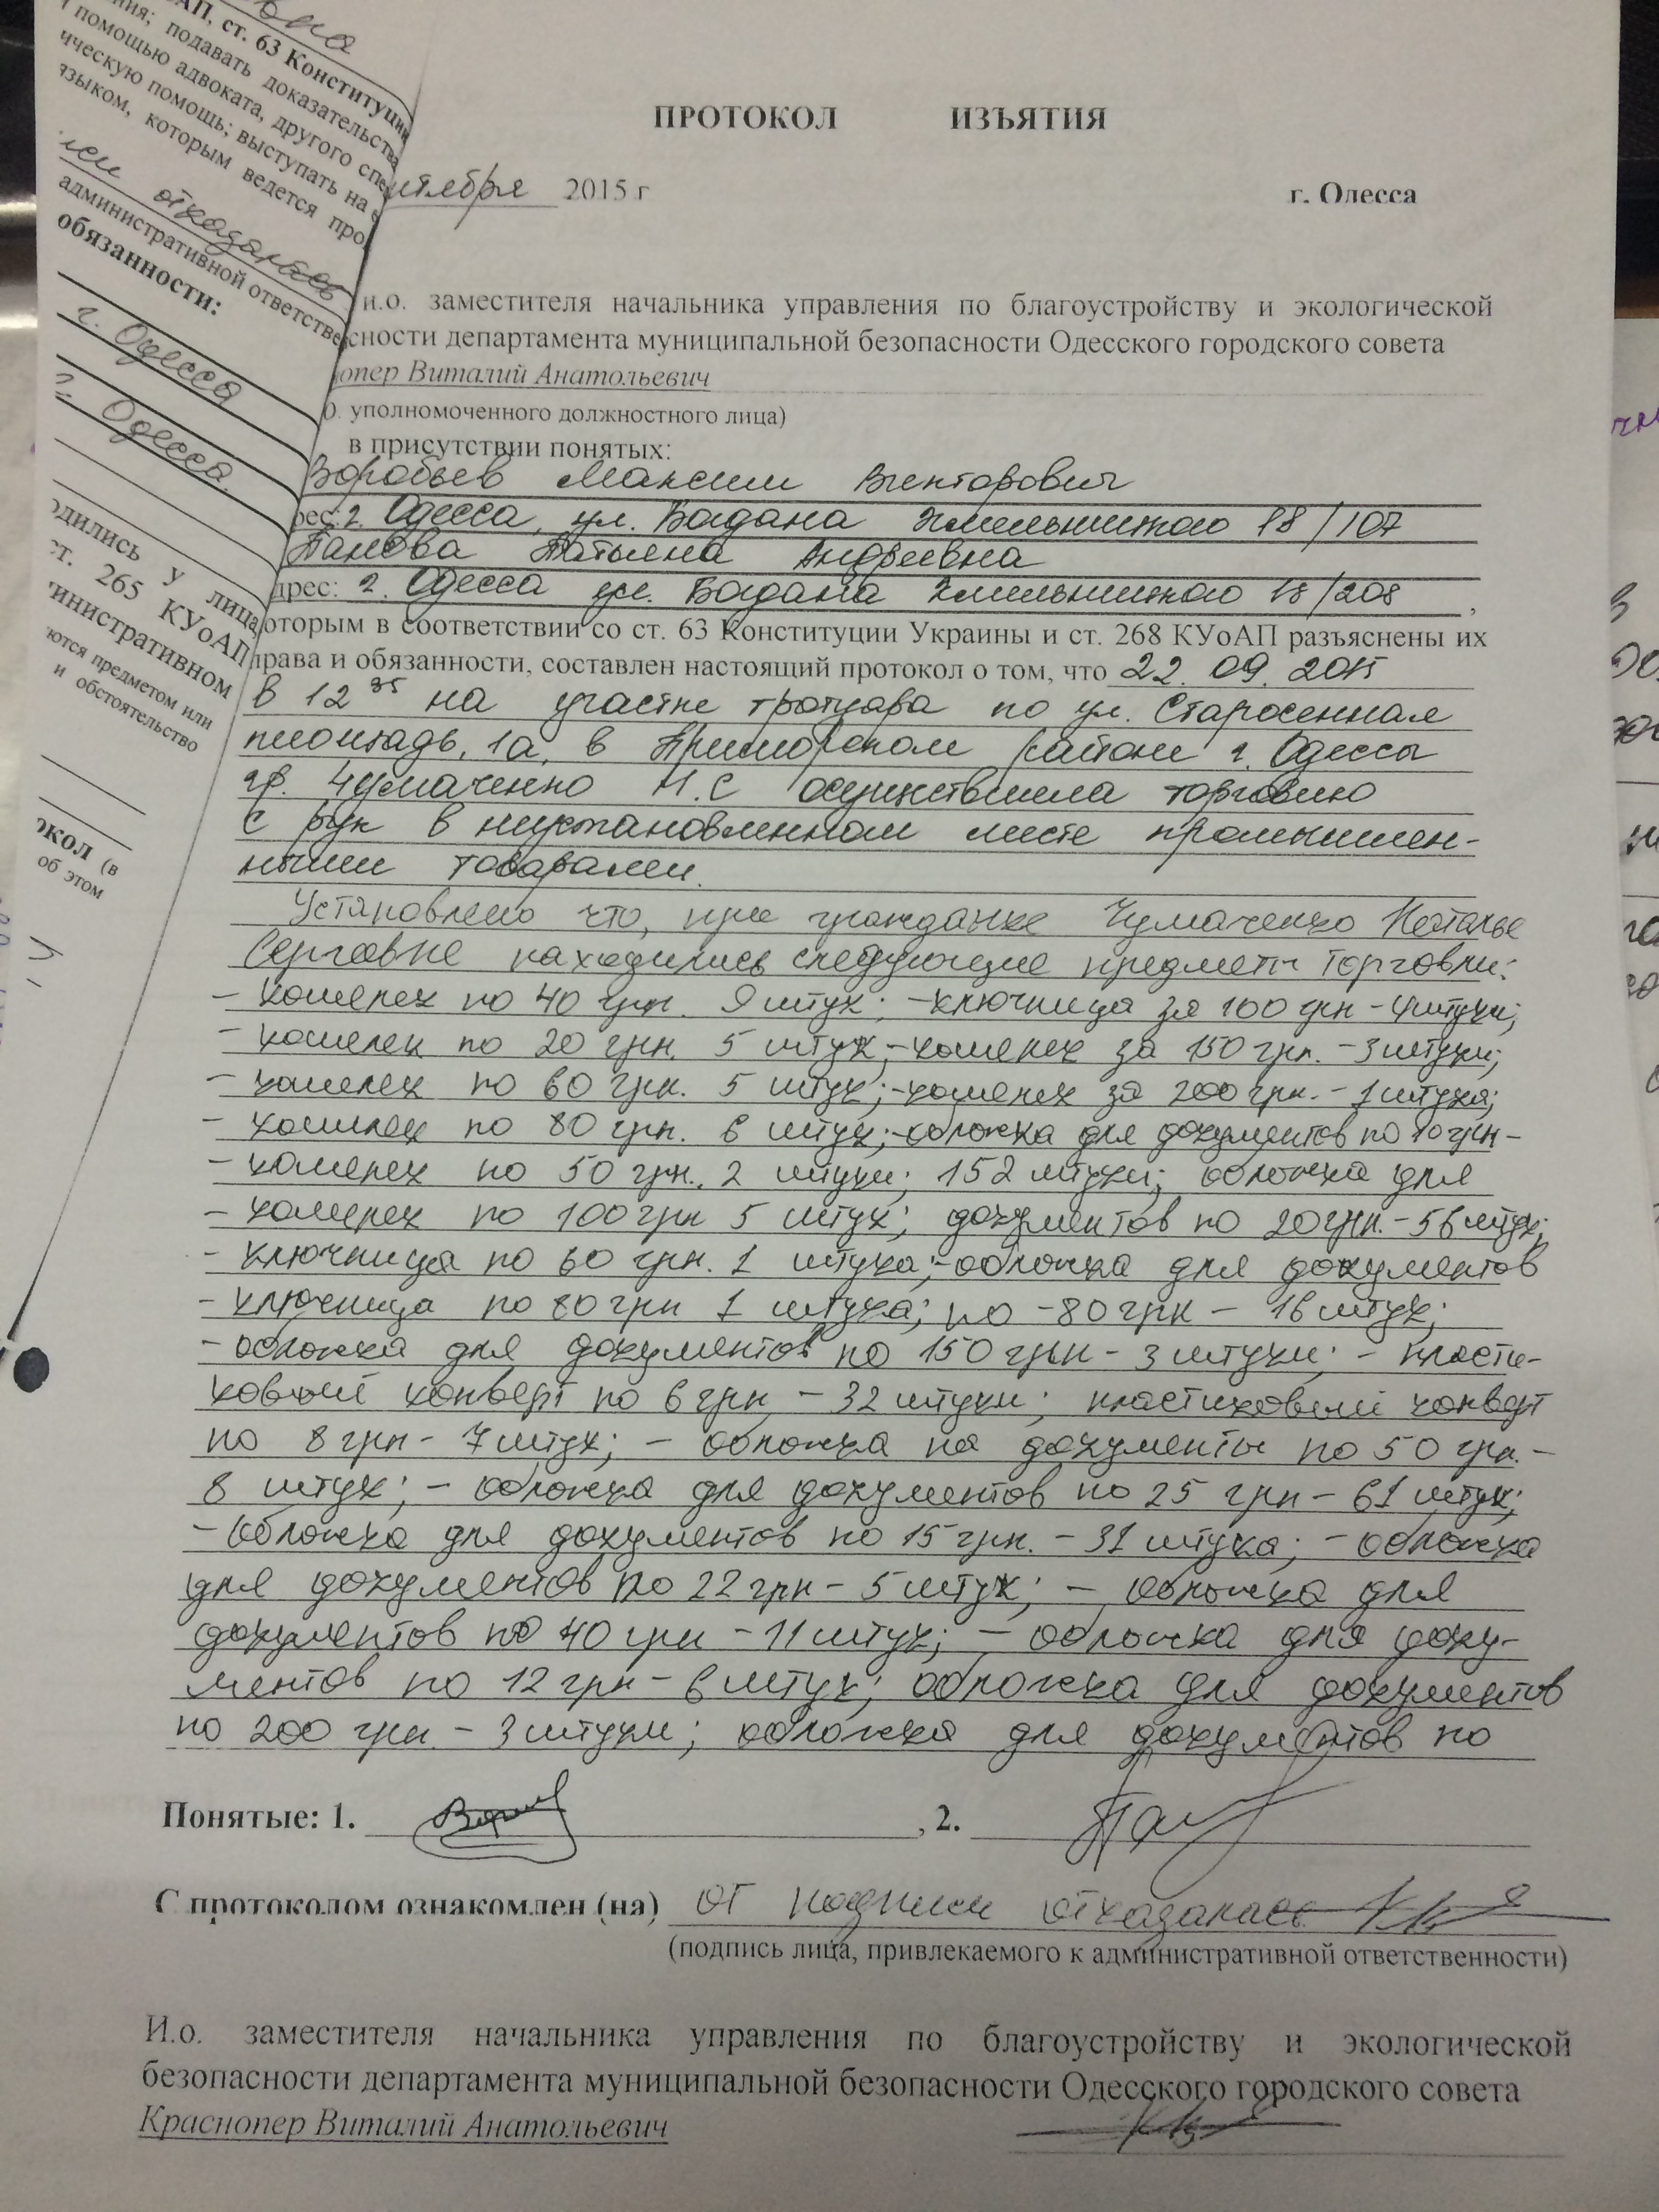 АП, ст. 63 Конституции
подавать доказательства
помощью адвоката, другого спе
ическую помощь; выступать на
языком, которым ведется про
отказалась
административной ответстве
обязанности:
г. Одесса
г. Одесса.
одились у лица
ст. 265 КУоАП
министративном
ются предметом или
и обстоятельство
окол (в
об этом
ПРОТОКОЛ ИЗЪЯТИЯ
нтября 2015 г г. Одесса
и.о. заместителя начальника управления по благоустройству и экологической
сности департамента муниципальной безопасности Одесского городского совета
опер Виталий Анатольевич
О. уполномоченного должностного лица)
в присутствии понятых:
Воробьев Максим Викторович
рес: г. Одесса, ул. Богдана Хмельницкого 18/107
Панова Татьяна Андреевна
дрес: г. Одесса ул. Богдана Хмельницкого 18/208 ,
оторым в соответствии со ст. 63 Конституции Украины и ст. 268 КУоАП разъяснены их
права и обязанности, составлен настоящий протокол о том, что 22. 09. 2015
в 12 35 на участке тротуара по ул. Старосенная
площадь, 1а, в Приморском районе г. Одессы
гр. Чумаченко Н.С осуществляла торговлю
с рук в неустановленном месте промышлен-
ными товарами.
Установлено что, при гражданке Чумаченко Наталье
Сергеевне находились следующие предметы торговли:
- кошелек по 40 грн. 9 штук; - ключница за 100 грн - 4 штуки;
- кошелек по 20 грн. 5 штук; - кошелек за 150 грн. - 3 штуки;
- кошелек по 60 грн. 5 штук; - кошелек за 200 грн. - 1 штука;
- кошелек по 80 грн. 6 штук; - обложка для документов по 10 грн -
- кошелек по 50 грн. 2 штуки; 152 штуки; обложка для
- кошелек по 100 грн 5 штук; документов по 20 грн. - 56 штук;
- ключница по 60 грн. 1 штука; - обложка для документов
- ключница по 80 грн 1 штука; по - 80 грн - 16 штук;
- обложка для документов по 150 грн - 3 штуки; - пласти-
ковый конверт по 6 грн - 32 штуки; пластиковый конверт
по 8 грн - 7 штук; - обложка на документы по 50 грн. -
8 штук; - обложка для документов по 25 грн - 61 штук;
- обложка для документов по 15 грн. - 31 штука; - обложка
для документов по 22 грн - 5 штук; - обложка для
документов по 40 грн - 11 штук; - обложка для доку-
ментов по 12 грн - 6 штук; обложка для документов
по 200 грн. - 3 штуки; обложка для документов по
Понятые: 1. , 2.
С протоколом ознакомлен (на) от подписи отказалась
(подпись лица, привлекаемого к административной ответственности)
И.о. заместителя начальника управления по благоустройству и экологической
безопасности департамента муниципальной безопасности Одесского городского совета
Краснопер Виталий Анатольевич